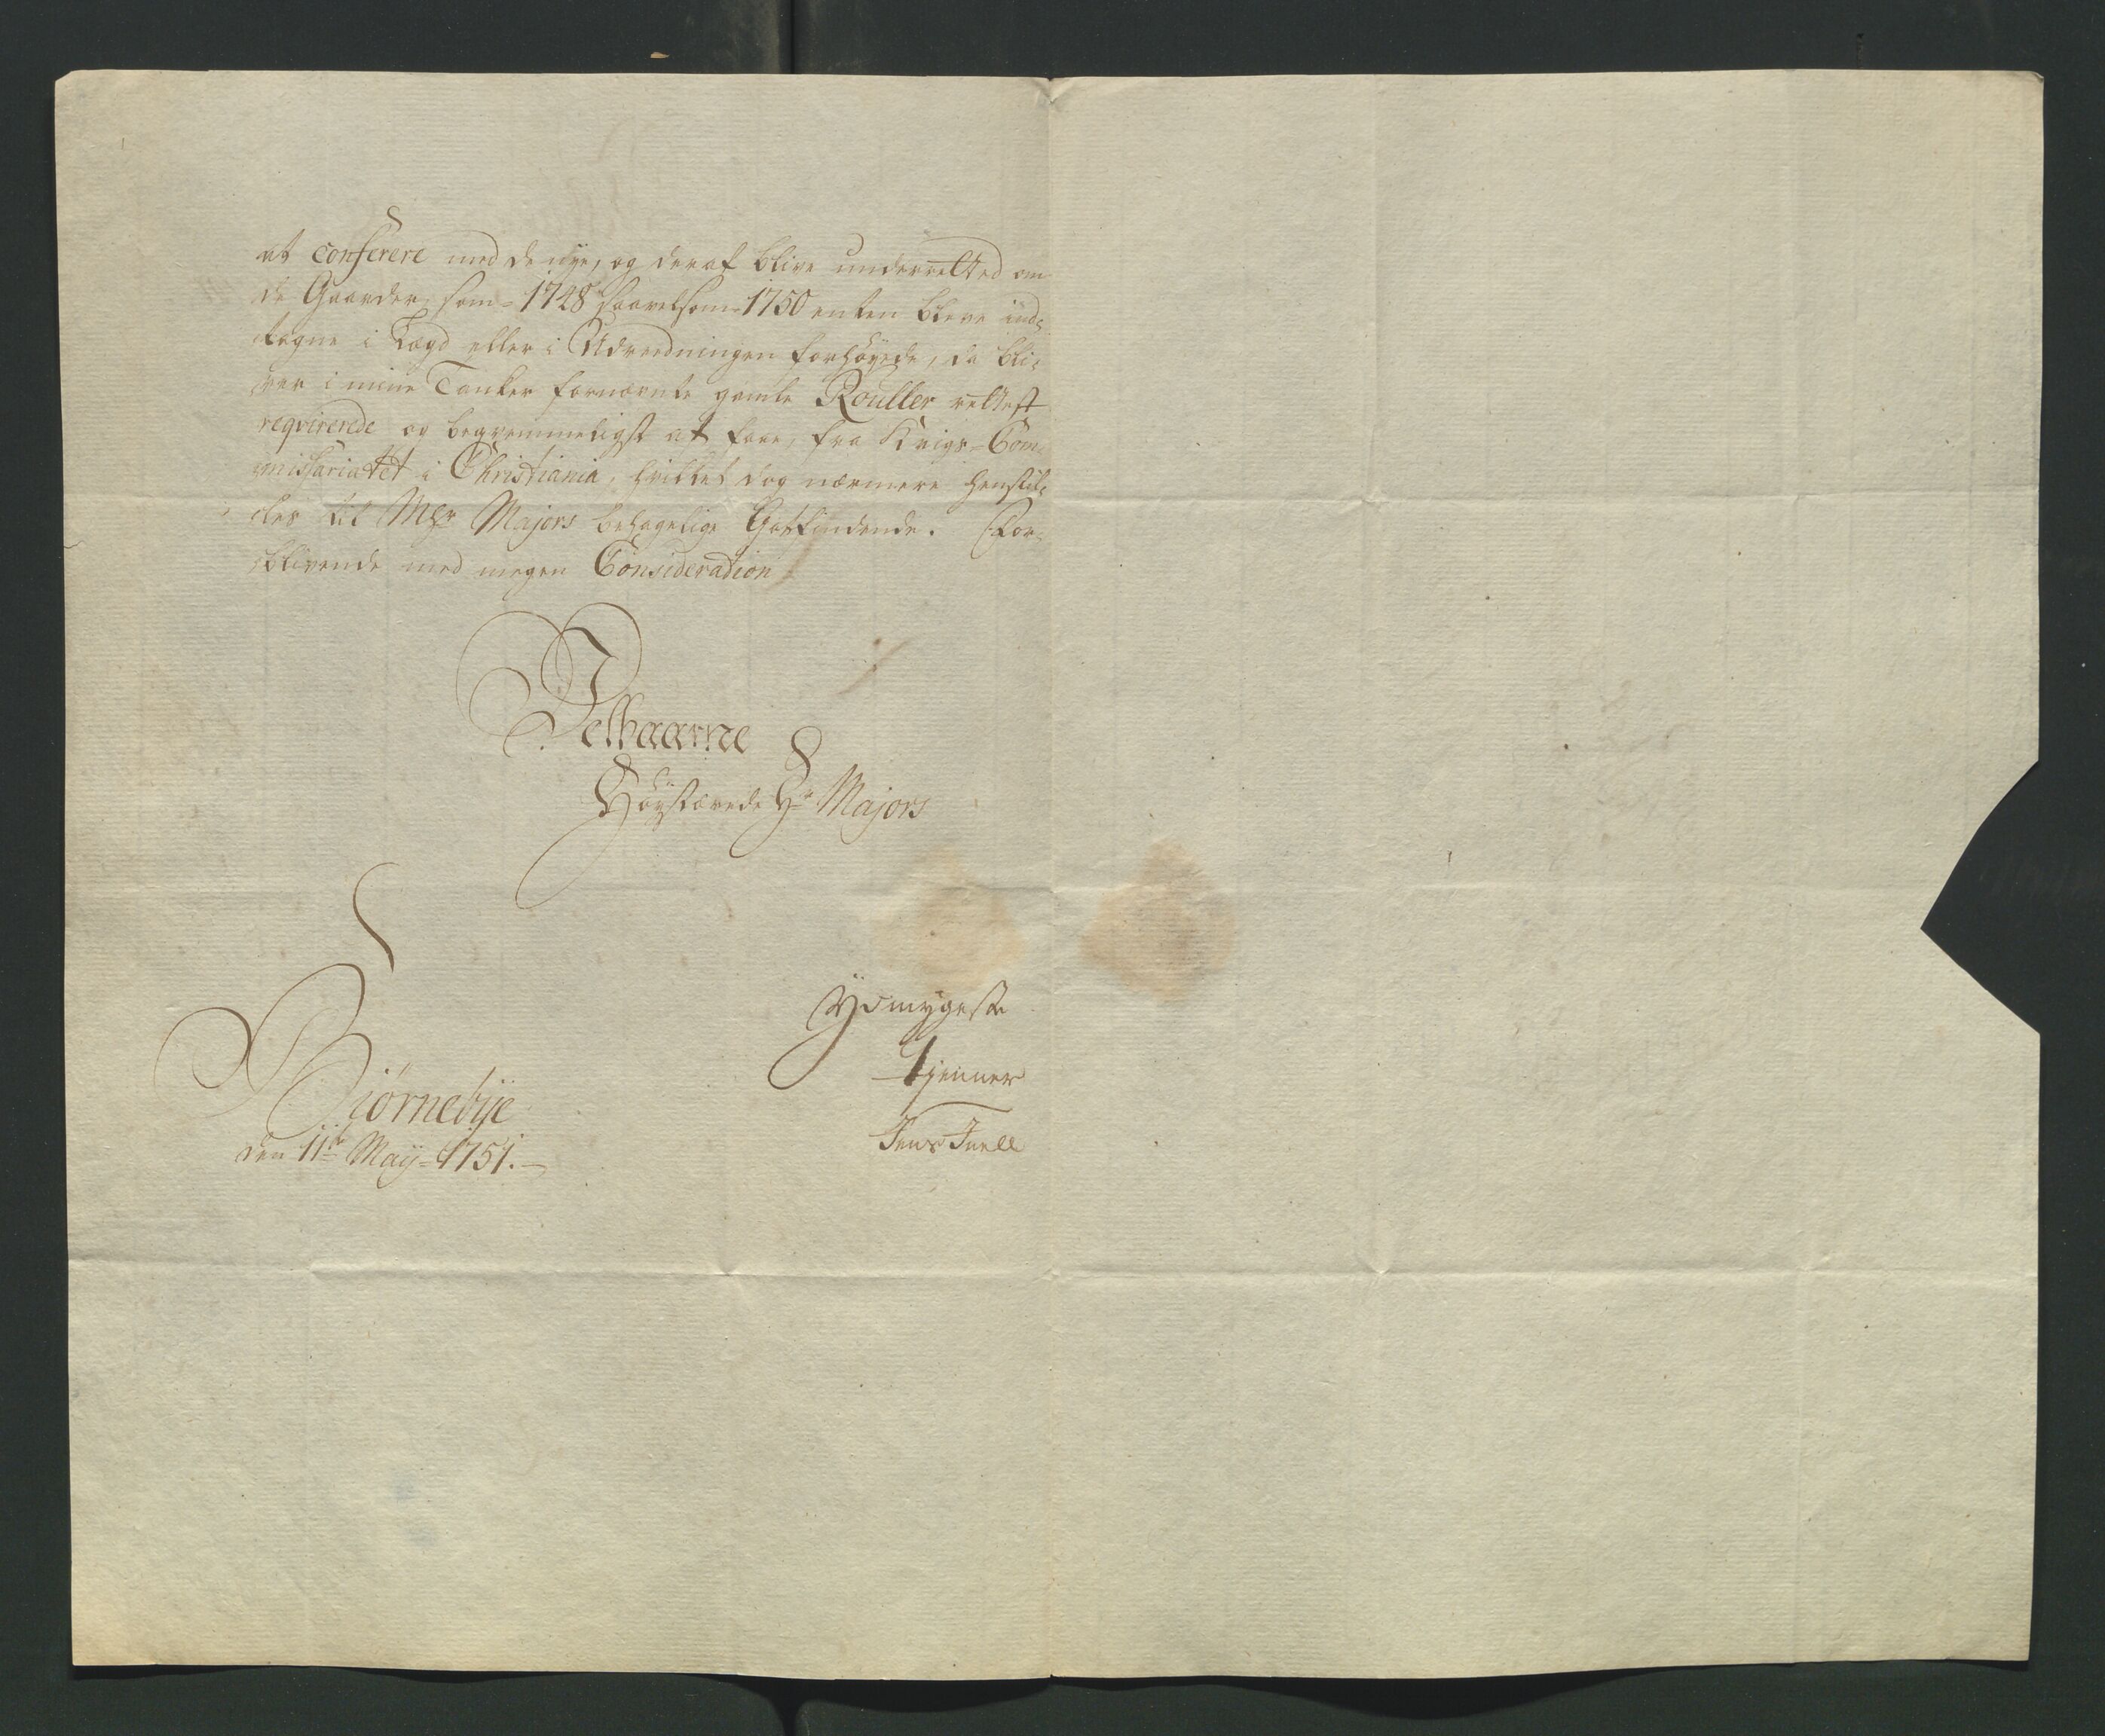 at conferere med de nye, og deraf blive underretted om
de Gaarder, som = 1748 saavelsom = 1750 enten bleve ind=
tagne i Lægd eller i Udreedningen forhøyede, da bli=
ver i mine Tanker fornævnte gamle Rouller rettest
reqvirerede og beqvemmeligst at faae, fra Krigs=Com=
missariatet i Christiania, hvilket dog nærmere henstil=
les til Mgr Majors behagelige Gotfindende. For=
blivende med megen Consideration
Velbaarne
Høystærede Hr Majors
Ydmygeste
Tjenner
Jens Juell
Biørnebye
den 11te Maÿ = 1751.